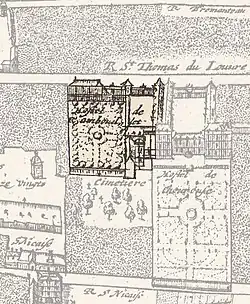 R Fromanteau
R St Thomas du Louure
Hostel de
Cimetiere
Hostel
de
Cheureuse
ze Vingts
St Nicaise
R St Nicaise